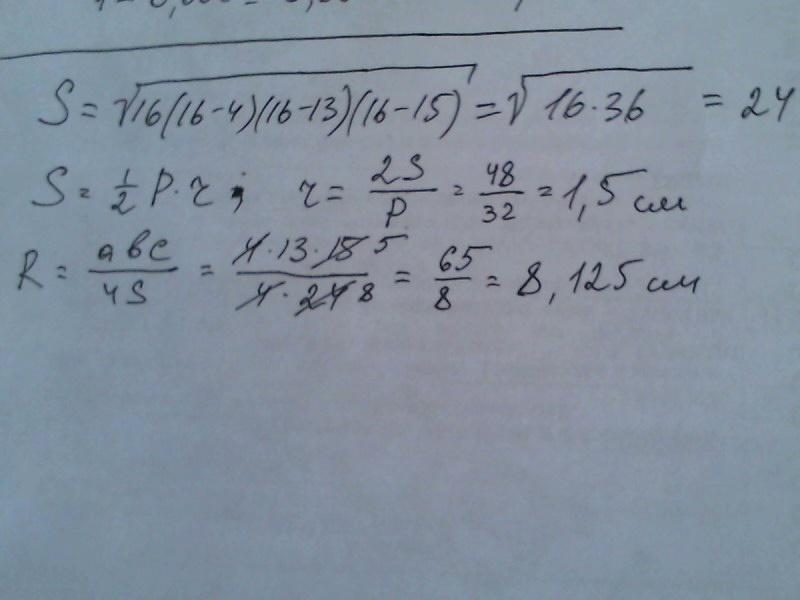 S = √16(16-4)(16-13)(16-15) = √16·36 = 24
S = 1/2 P·r; r = 2S/P = 48/32 = 1,5 см
R = abc/4S = 4·13·15 5/4·24 8 = 65/8 = 8,125 см